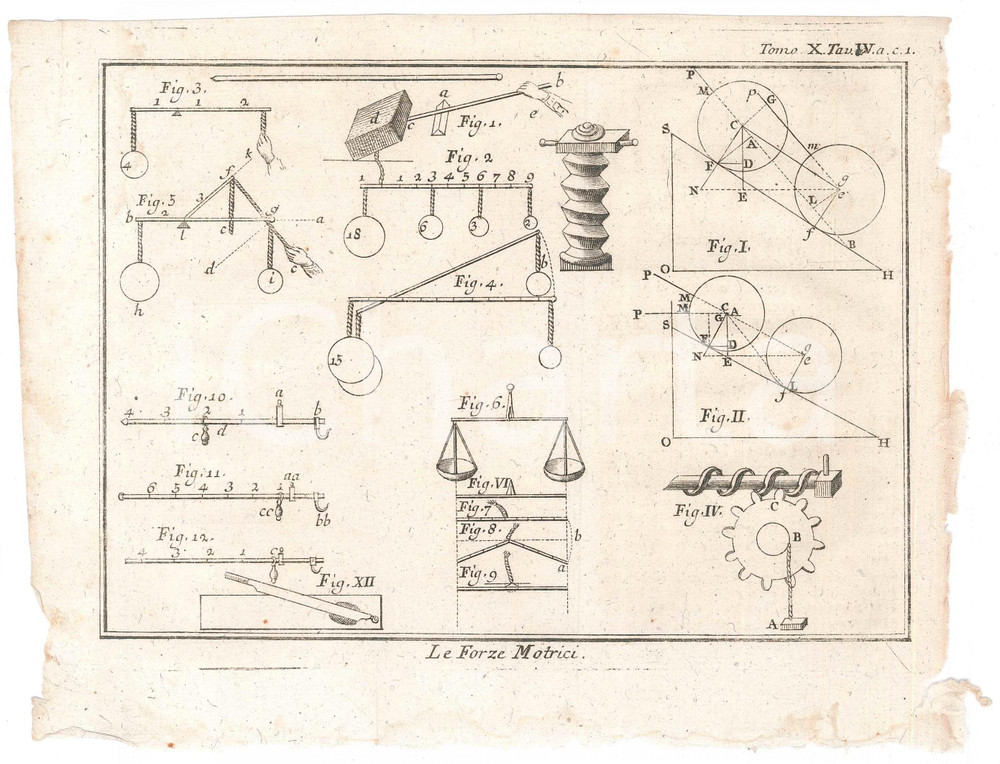 Tomo X. Tav. IV. a. c. 1.
Fig. 3.
1 1 2
4
k
a b
d c e
Fig. 1.
Fig. 2
1 1 2 3 4 5 6 7 8 9
18 6 3 2
f
3
Fig. 5
b 2 g a
l c
d c
h i
Fig. 4.
b
15
P M p G
C
S A m
F D
N E L g e
f B
Fig. I.
O H
P
M
M C
P G A
S F D
N E g e
f L
Fig. II.
O H
Fig. 10.
4 3 2 1 a b
c d
Fig. 6.
Fig. 11.
6 5 4 3 2 1 aa
cc bb
Fig. VI
Fig. 7
Fig. 8.
b
a
Fig. 9
Fig. IV.
C
B
A
Fig. 12.
4 3 2 1 c a
Fig. XII
Le Forze Motrici.